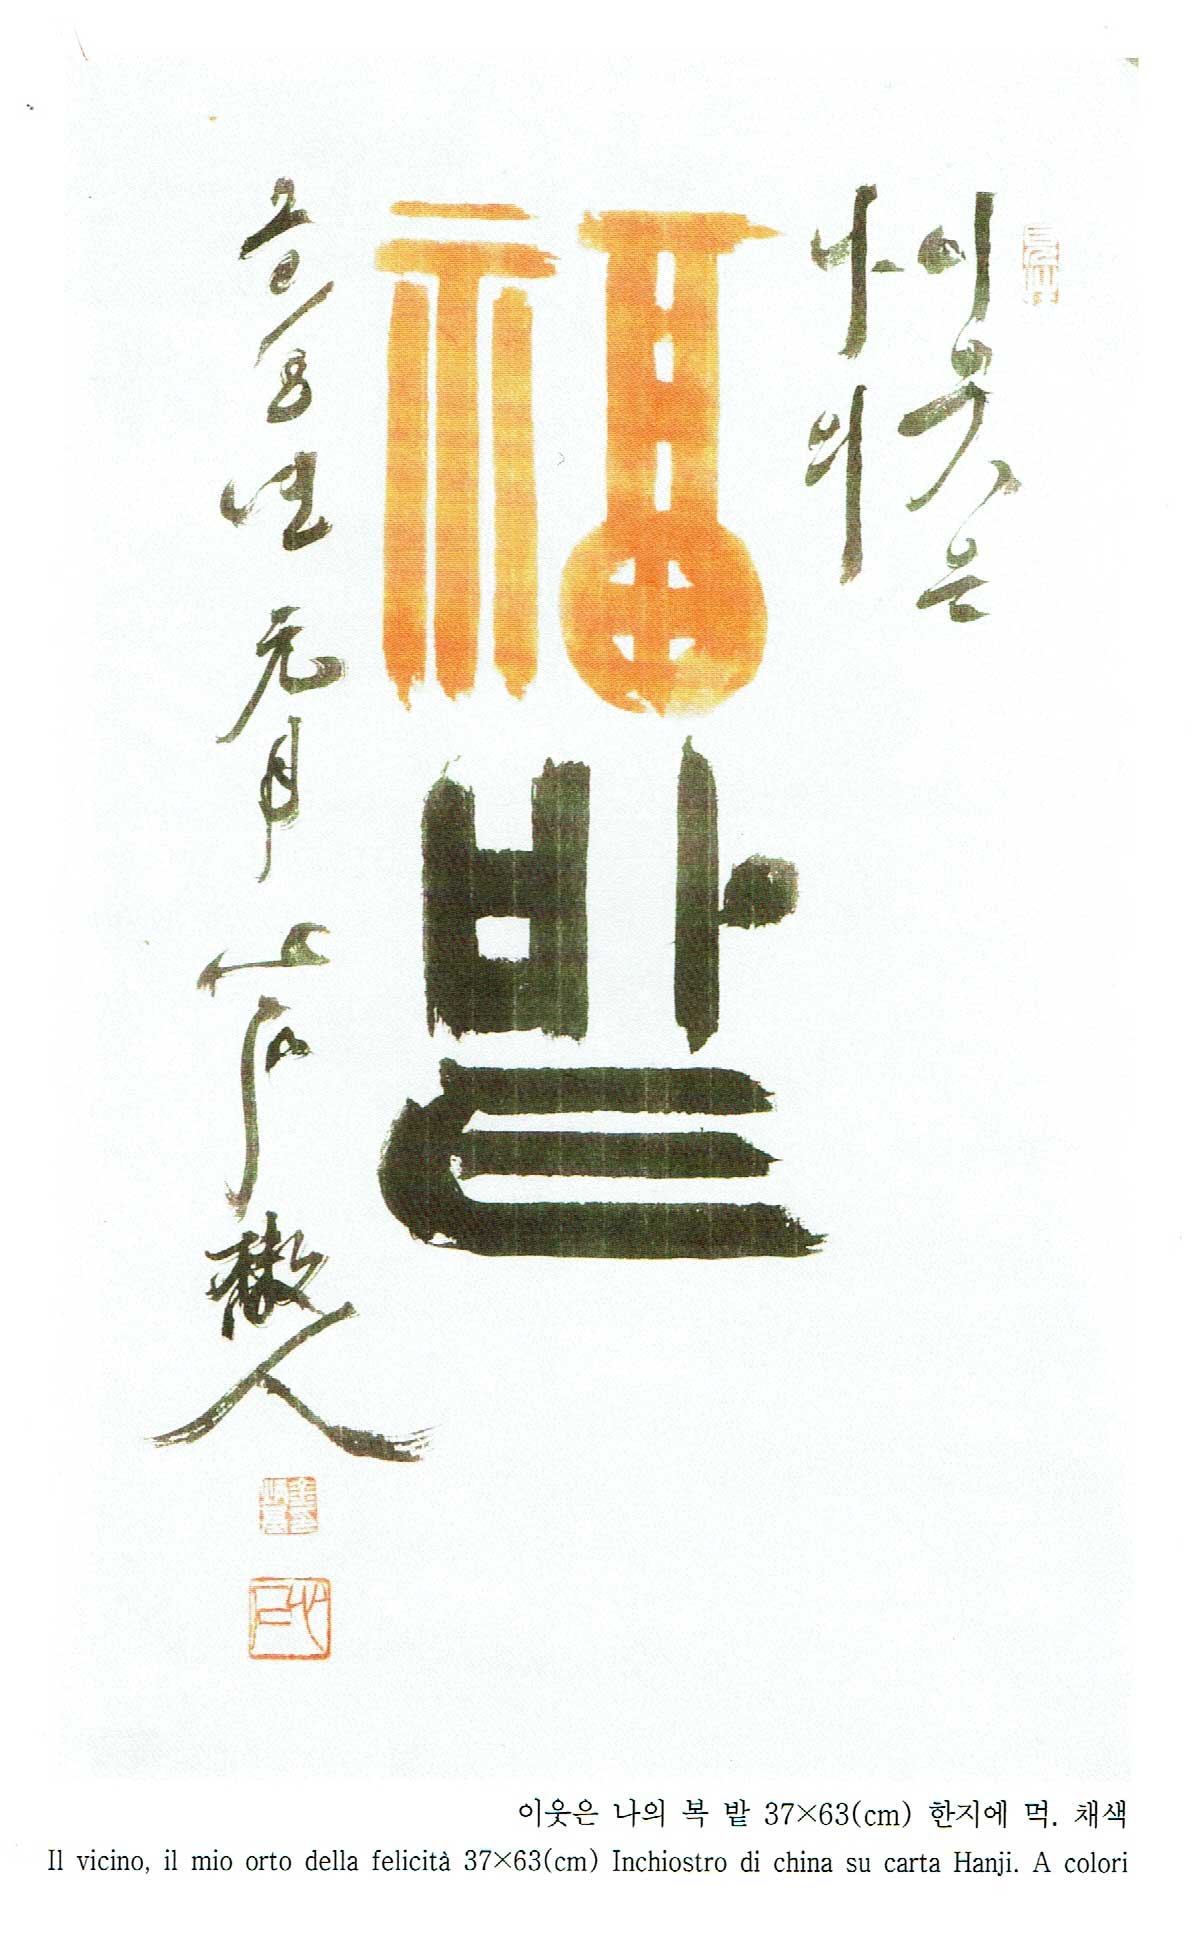 이웃은
나의
福밭
8년 元月
人
이웃은 나의 복 밭 37×63(cm) 한지에 먹. 채색
Il vicino, il mio orto della felicità 37×63(cm) Inchiostro di china su carta Hanji. A colori